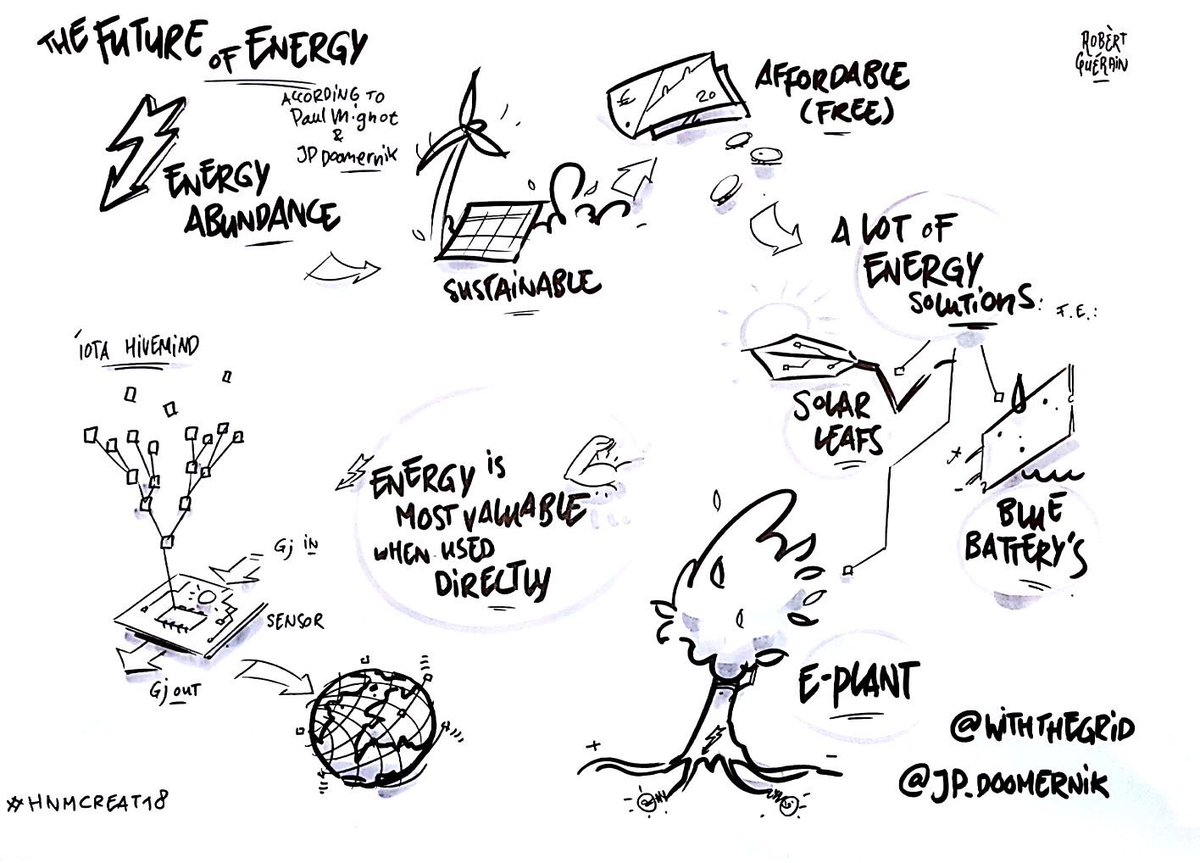 THE FUTURE OF ENERGY
ACCORDING TO
Paul Mignot
&
JP Doomernik
ROBÈRT
GUÉRAIN
ENERGY
ABUNDANCE
SUSTAINABLE
€
20
AFFORDABLE
(FREE)
A LOT OF
ENERGY
SOLUTIONS: F.E.:
SOLAR
LEAFS
BLUE
BATTERY'S
E-PLANT
IOTA HIVEMIND
Gj in
SENSOR
Gj out
ENERGY is
MOST VALUABLE
WHEN USED
DIRECTLY
@WITHTHEGRID
@JP_DOOMERNIK
#HNMCREAT18